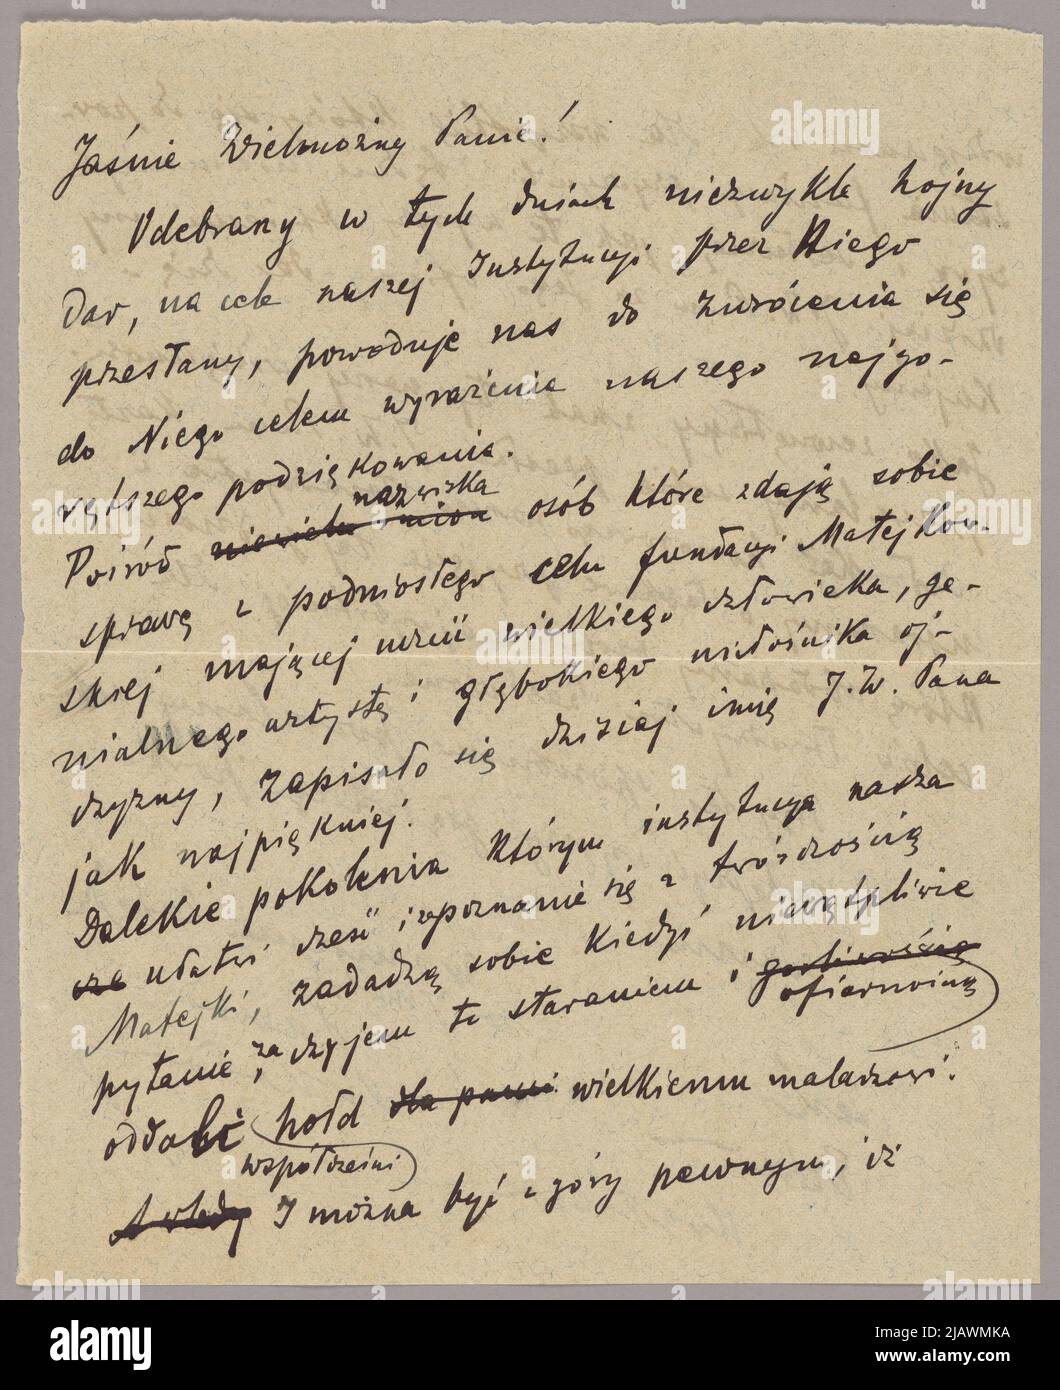 Jaśnie Wielmożny Panie!
Odebrany w tych dniach niezwykle hojny
dar, na cele naszej Instytucyi przez Niego
przesłany, powoduje nas do zwrócenia się
do Niego celem wyrażenia naszego najgo-
rętszego podziękowania.
nazwiska
Pośród niewielu osób które zdają sobie
sprawę z podniosłego celu fundacyi Matejkow-
skiej mającej uczcić wielkiego człowieka, ge-
nialnego artystę i głębokiego miłośnika oj-
czyzny, zapisało się dzisiaj imię J. W. Pana
jak najpiękniej.
Dalekie pokolenia którym instytucya nasza
cze ułatwi cześć i zapoznanie się z twórczością
Matejki, zadadzą sobie kiedyś niewątpliwie
pytanie, za czyjem to staraniem i gorliwością
ofiarnością
oddali hołd dla pami wielkiemu malarzowi.
współcześni
A wtedy I można być z góry pewnym, iż
alamy
Image ID: 2JAWMKA
www.alamy.com